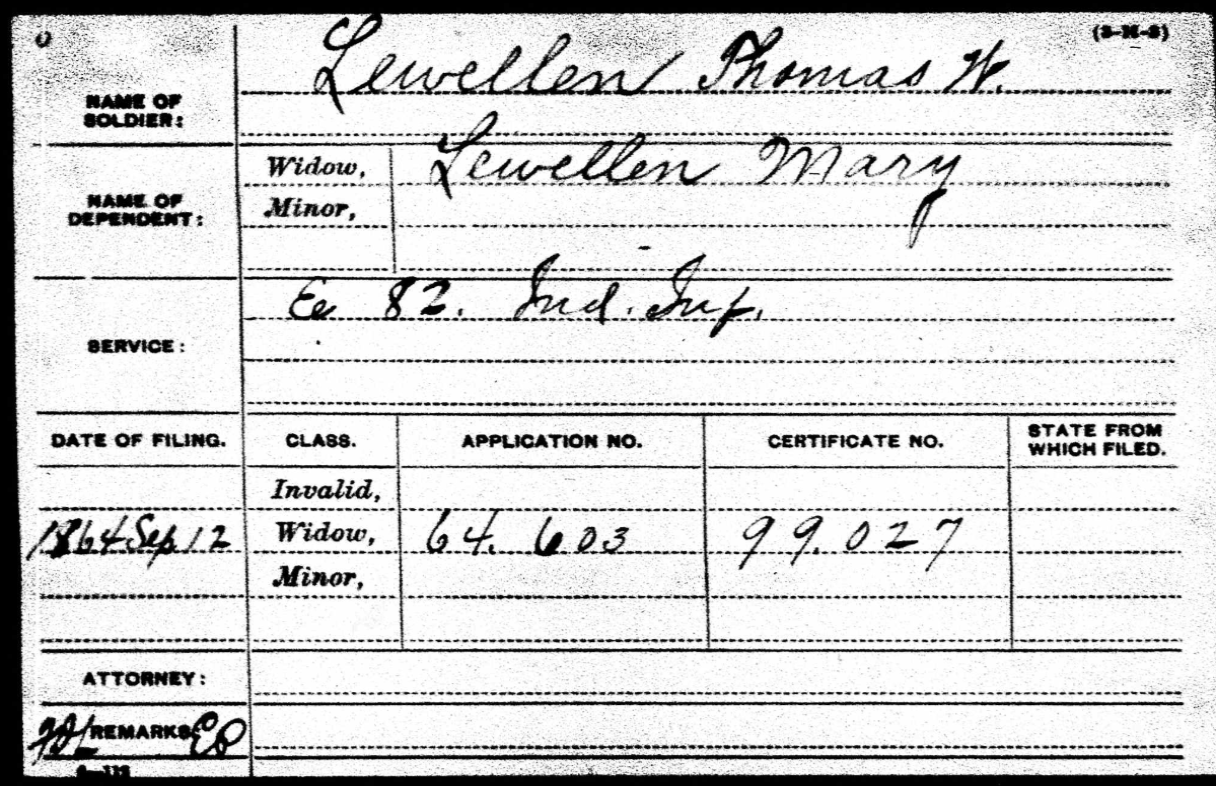 Lewellen Thomas W.
NAME OF
SOLDIER:
Widow, Lewellen Mary
NAME OF
DEPENDENT:
Minor,
E 82. Ind. Inf.
SERVICE:
DATE OF FILING. CLASS. APPLICATION NO. CERTIFICATE NO. STATE FROM
WHICH FILED.
Invalid,
1864 Sep 12 Widow, 64.603 99.027
Minor,
ATTORNEY:
REMARKS: